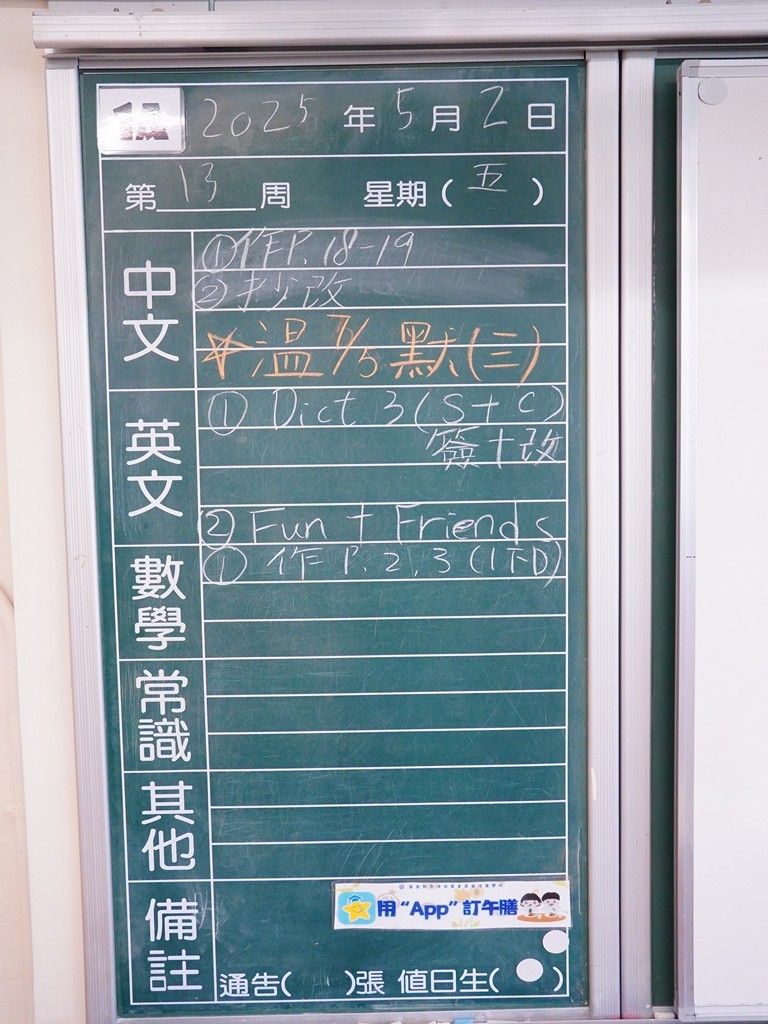 1A 2025年5月2日
第13周 星期(五)
中文
①作P.18-19
②抄改
☆溫7/5默(三)
英文
① Dict 3 (S+C)
簽+改
② Fun + Friends
數學
① 作 P.2,3 (下D)
常識
其他
備註
用“App”訂午膳
通告( )張 值日生( )